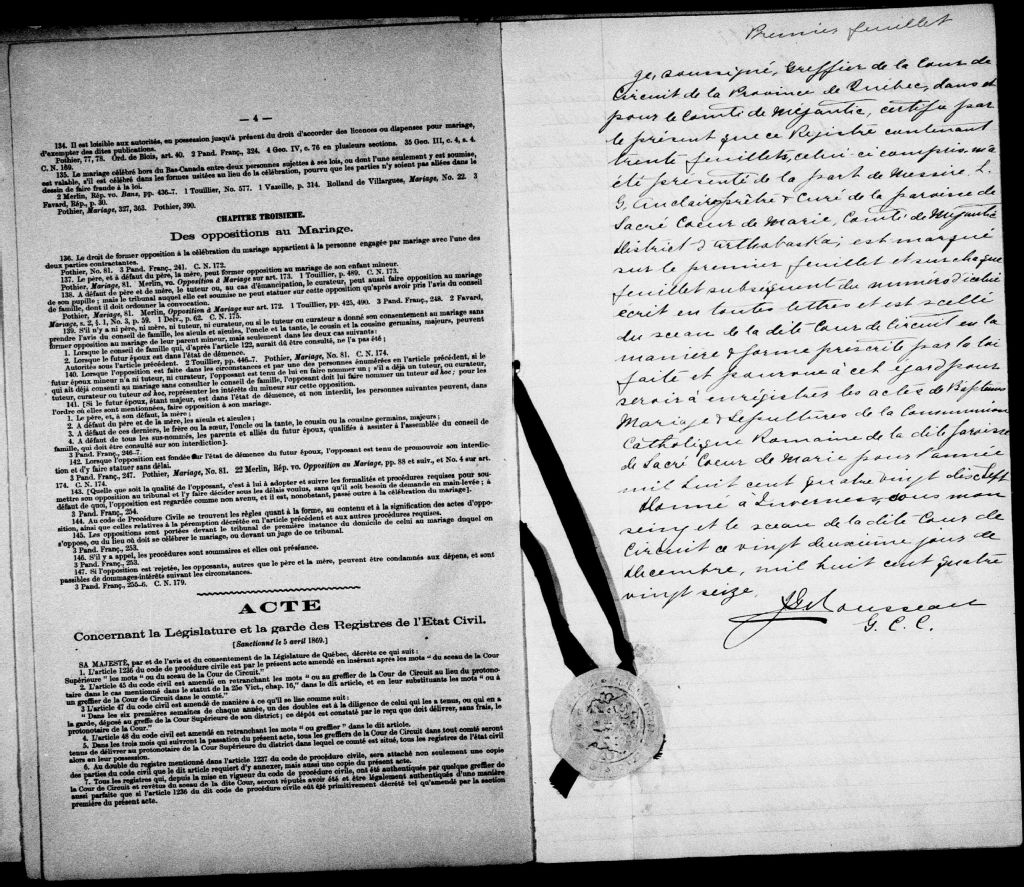 — 4 —
134. Il est loisible aux autorités, en possession jusqu'à présent du droit d'accorder des licences ou dispenses pour mariage,
d'exempter des dites publications.
Pothier, 77, 78. Ord. de Blois, art. 40. 2 Pand. Franç., 324. 4 Geo. IV, c. 76 en plusieurs sections. 35 Geo. III, c. 4, s. 4.
C. N. 169.
135. Le mariage célébré hors du Bas-Canada entre deux personnes sujettes à ses lois, ou dont l'une seulement y est soumise,
est valable, s'il est célébré dans les formes usitées au lieu de la célébration, pourvu que les parties n'y soient pas allées dans le
dessein de faire fraude à la loi.
2 Merlin, Rép. vo. Bans, pp. 436-7. 1 Touillier, No. 577. 1 Vazeille, p. 314. Rolland de Villargues, Mariage, No. 22. 3
Favard, Rép., p. 30.
Pothier, Mariage, 327, 363. Pothier, 390.
CHAPITRE TROISIEME.
Des oppositions au Mariage.
136. Le droit de former opposition à la célébration du mariage appartient à la personne engagée par mariage avec l'une des
deux parties contractantes.
Pothier, No. 81. 3 Pand. Franç., 241. C. N. 172.
137. Le père, et à défaut du père, la mère, peut former opposition au mariage de son enfant mineur.
Pothier, Mariage, 81. Merlin, vo. Opposition à Mariage sur art. 173. 1 Touillier, p. 489. C. N. 173.
138. A défaut de père et de mère, le tuteur ou, au cas d'émancipation, le curateur, peut aussi faire opposition au mariage
de son pupille ; mais le tribunal auquel elle est soumise ne peut statuer sur cette opposition qu'après avoir pris l'avis du conseil
de famille, dont il doit ordonner la convocation.
Pothier, Mariage, 81. Merlin, Opposition à Mariage sur art. 172. 1 Touillier, pp. 425, 490. 3 Pand. Franç., 248. 2 Favard,
Mariage, s. 2, § 1, No. 3, p. 59. 1 Delv., p. 62. C. N. 175.
139. S'il n'y a ni père, ni mère, ni tuteur, ni curateur, ou si le tuteur ou curateur a donné son consentement au mariage sans
prendre l'avis du conseil de famille, les aïeuls et aïeules, l'oncle et la tante, le cousin et la cousine germains, majeurs, peuvent
former opposition au mariage de leur parent mineur, mais seulement dans les deux cas suivants :
1. Lorsque le conseil de famille qui, d'après l'article 122, aurait dû être consulté, ne l'a pas été ;
2. Lorsque le futur époux est dans l'état de démence.
Autorités sous l'article précédent. 2 Touillier, pp. 446-7. Pothier, Mariage, No. 81. C. N. 174.
140. Lorsque l'opposition est faite dans les circonstances et par une des personnes énumérées en l'article précédent, si le
futur époux mineur n'a ni tuteur, ni curateur, l'opposant est tenu de lui en faire nommer un ; s'il a déjà un tuteur, ou curateur,
qui ait déjà consenti au mariage sans consulter le conseil de famille, l'opposant doit lui faire nommer un tuteur ad hoc ; pour les
tuteur, curateur ou tuteur ad hoc, représenter les intérêts du mineur sur cette opposition.
141. [Si le futur époux, étant majeur, est dans l'état de démence, et non interdit, les personnes suivantes peuvent, dans
l'ordre où elles sont mentionnées, faire opposition à son mariage.
1. Le père, et, à son défaut, la mère ;
2. A défaut du père et de la mère, les aïeuls et aïeules ;
3. A défaut de ces derniers, le frère ou la sœur, l'oncle ou la tante, le cousin ou la cousine germains, majeurs ;
4. A défaut de tous les sus-nommés, les parents et alliés du futur époux, qualifiés à assister à l'assemblée du conseil de
famille, qui doit être consulté sur son interdiction].
3 Pand. Franç., 246-7.
142. Lorsque l'opposition est fondée sur l'état de démence du futur époux, l'opposant est tenu de promouvoir son interdic-
tion et d'y faire statuer sans délai.
3 Pand. Franç., 247. Pothier, Mariage, No. 81. 22 Merlin, Rép. vo. Opposition au Mariage, pp. 88 et suiv., et No. 4 sur art.
174. C. N. 174.
143. [Quelle que soit la qualité de l'opposant, c'est à lui à adopter et suivre les formalités et procédures requises pour sou-
mettre son opposition au tribunal et l'y faire décider sous les délais voulus, sans qu'il soit besoin de demande en main-levée ; à
défaut de quoi, l'opposition est regardée comme non avenue, et il est, nonobstant, passé outre à la célébration du mariage].
3 Pand. Franç., 254.
144. Au code de Procédure Civile se trouvent les règles quant à la forme, au contenu et à la signification des actes d'oppo-
sition, ainsi que celles relatives à la péremption décrétée en l'article précédent et aux autres procédures requises.
145. Les oppositions sont portées devant le tribunal de première instance du domicile de celui au mariage duquel on
s'oppose, ou du lieu où doit se célébrer le mariage, ou devant un juge de ce tribunal.
3 Pand. Franç., 253.
146. S'il y a appel, les procédures sont sommaires et elles ont préséance.
3 Pand. Franç., 253.
147. Si l'opposition est rejetée, les opposants, autres que le père et la mère, peuvent être condamnés aux dépens, et sont
passibles de dommages-intérêts suivant les circonstances.
3 Pand. Franç., 255-6. C. N. 179.
ACTE
Concernant la Législature et la garde des Registres de l'Etat Civil.
[Sanctionné le 5 avril 1869.]
SA MAJESTÉ, par et de l'avis et du consentement de la Législature de Québec, décrète ce qui suit :
1. L'article 1236 du code de procédure civile est par le présent acte amendé en insérant après les mots " du sceau de la Cour
Supérieure " les mots " ou du sceau de la Cour de Circuit."
2. L'article 45 du code civil est amendé en retranchant les mots " ou au greffier de la Cour de Circuit au lieu du protono-
taire dans le cas mentionné dans le statut de la 25e Vict., chap. 16," dans le dit article, et en leur substituant les mots " ou à
un greffier de la Cour de Circuit dans le comté."
3 L'article 47 du code civil est amendé de manière à ce qu'il se lise comme suit :
" Dans les six premières semaines de chaque année, un des doubles est à la diligence de celui qui les a tenus, ou qui en a
la garde, déposé au greffe de la Cour Supérieure de son district ; ce dépôt est constaté par le reçu que doit délivrer, sans frais, le
protonotaire de la Cour."
4. L'article 48 du code civil est amendé en retranchant les mots " ou greffier " dans le dit article.
5. Dans les trois mois qui suivront la passation du présent acte, tous les greffiers de la Cour de Circuit dans tout comté seront
tenus de délivrer au protonotaire de la Cour Supérieure du district dans lequel ce comté est situé, tous les registres de l'état civil
alors en leur possession.
6. Au double du registre mentionné dans l'article 1237 du code de procédure civile, sera attaché non seulement une copie
des parties du code civil que le dit article requiert d'y annexer, mais aussi une copie du présent acte.
7. Tous les registres qui, depuis la mise en vigueur du code de procédure civile, ont été authentiqués par quelque greffier de
la Cour de Circuit et revêtus du sceau de la dite Cour, seront réputés avoir été et être légalement authentiqués d'une manière
aussi parfaite que si l'article 1236 du dit code de procédure civile eût été primitivement décrété tel qu'amendé par la section
première du présent acte.
Premier feuillet
Je, soussigné, Greffier de la Cour de
Circuit de la Province de Québec, dans et
pour le Comté de Mégantic, certifie par
le présent que ce Registre contenant
trente feuillets, celui-ci compris, m'a
été présenté de la part de Messire L.
G. Auclair, prêtre & Curé de la paroisse de
Sacré Coeur de Marie, Comté de Mégantic
District d'Arthabaska, est marqué
sur le premier feuillet et sur chaque
feuillet subséquent du numéro d'icelui
écrit en toutes lettres et est scellé
du sceau de la dite Cour de Circuit en la
manière & forme prescrite par la loi
faite et pourvue à cet égard pour
servir à enregistrer les actes de Baptêmes
Mariage & Sépultures de la Communion
Catholique Romaine de la dite paroisse
de Sacré Coeur de Marie pour l'année
mil huit cent quatre vingt dix sept
Donné à Inverness, sous mon
seing et le sceau de la dite Cour de
Circuit ce vingt deuxième jour de
Décembre, mil huit cent quatre
vingt seize.
Rousseau
G. C. C.